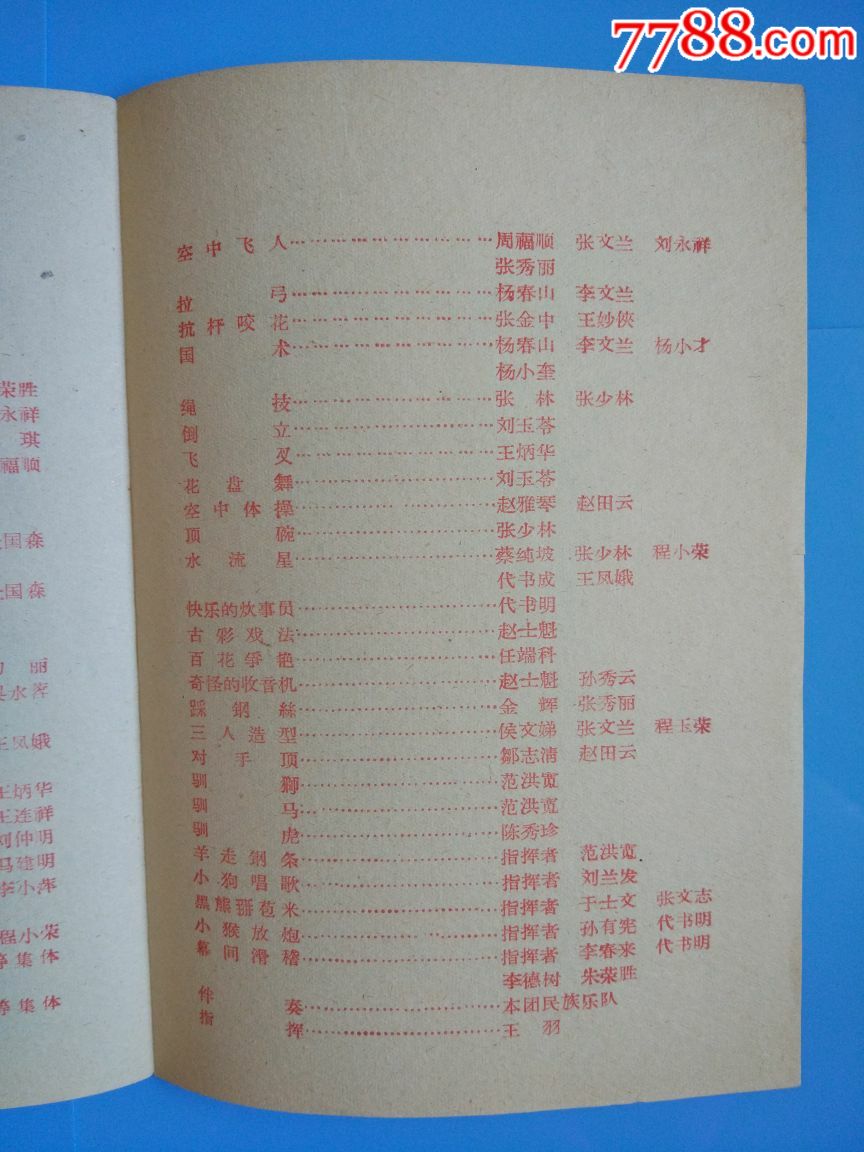 7788.com
荣胜
永祥
琪
福顺
国森
国森
丽
王凤娥
王炳华
王连祥
刘仲明
马建明
李小萍
程小荣
等集体
等集体
空中飞人………………………周福顺 张文兰 刘永祥
张秀丽
拉弓………………………杨春山 李文兰
抗杆咬花………………………张金中 王妙侠
国术………………………杨春山 李文兰 杨小才
杨小奎
绳技………………………张林 张少林
倒立………………………刘玉苓
飞叉………………………王炳华
花盘舞………………………刘玉苓
空中体操………………………赵雅琴 赵田云
顶碗………………………张少林
水流星………………………蔡纯坡 张少林 程小荣
代书成 王凤娥
快乐的炊事员………………………代书明
古彩戏法………………………赵士魁
百花争艳………………………任端科
奇怪的收音机………………………赵士魁 孙秀云
踩鋼絲………………………金辉 张秀丽
三人造型………………………侯文娣 张文兰 程玉荣
对手顶………………………鄒志清 赵田云
驯獅………………………范洪宽
驯马………………………范洪宽
驯虎………………………陈秀珍
羊走鋼条………………………指挥者 范洪宽
小狗唱歌………………………指挥者 刘兰发
黑熊掰苞米………………………指挥者 于士文 张文志
小猴放炮………………………指挥者 孙有宪 代书明
幕间滑稽………………………指挥者 李春来 代书明
李德树 朱荣胜
伴奏………………………本团民族乐队
指挥………………………王羽